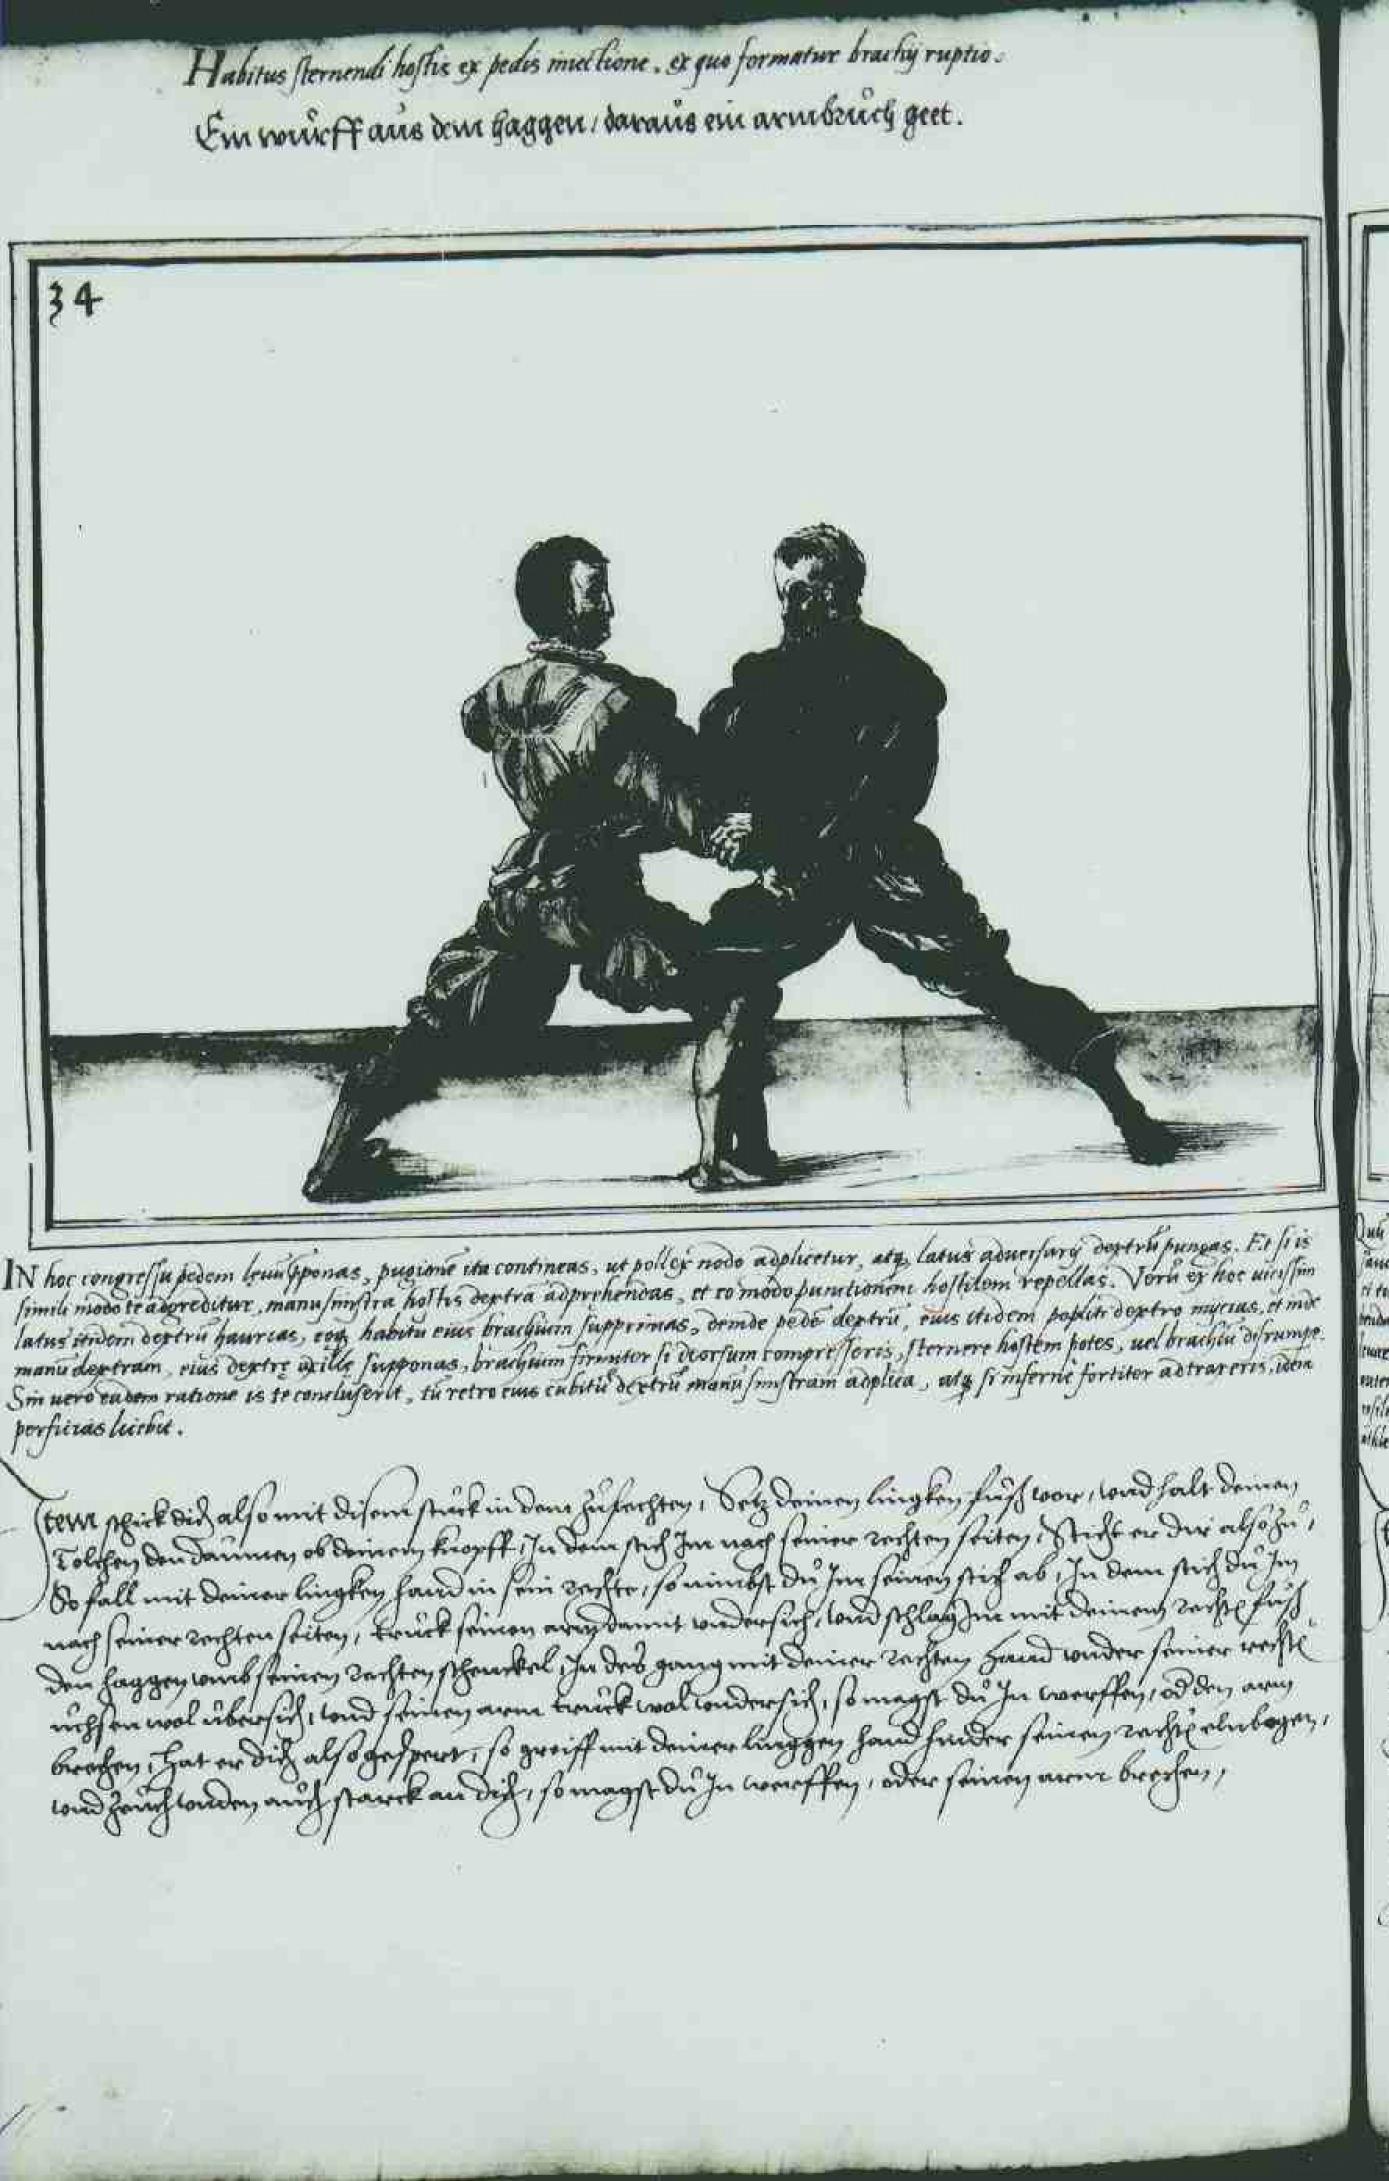 Habitus sternendi hostis ex pedis iniectione, ex quo formatur brachij ruptio.
Ein wůrff aůs dem haggen / daraůs ein armbrůch geet.
34
IN hoc congressu pedem leuũ apponas, pugionẽ ita contineas, ut pollex nodo adplicetur, atq; latus adversarij dextrũ pungas. Et si is
simili modo te adgreditur, manu sinistra hostis dextra adprehendas, et eo modo punctionem hostilem repellas. Verũ ex hoc vicissim
latus itidem dextrũ haurias, eoq; habitu eius brachium supprimas, deinde pedẽ dextrũ, eius itidem popliti dextro inijcias, et mox
manu dextram, eius dextrę axillę supponas, brachium firmiter si deorsum compresseris, sternere hostem potes, uel brachiũ disrumpe.
Sin uero eadem ratione is te concluserit, tu retro eius cubitũ dextrũ manũ sinistram adplica, atq; si inferne fortiter adtraxeris, idem
perficias licebit.
Item schick dich also mit disem stuck in dem zůfechten, Setz deinen lingken fůß vor, vnd halt deinen
Tolchen den daumen ob deinem knopff, In dem stich Im nach seiner rechten seiten, Sticht er dir also zů,
So fall mit deiner lingken hand in sein rechte, so nimbst dů Im seinen stich ab, In dem stich dů Im
nach seiner rechten seiten, truck seinen arm damit vndersich, vnd schlag Im mit deinem rechtẽ fůß
den haggen vmb seinen rechten schenckel, In des gang mit deiner rechten hand vnder seiner rechtẽ
ůchsen wol ůbersich, vnd seinen arm truck wol vndersich, so magst dů In werffen, od den arm
brechen, Hat er dich also gespert, so greiff mit deiner linggen hand hinder seinen rechtẽ elnbogen,
vnd zeůch vnden aůch starck an dich, so magst dů In werffen, oder seinen arm brechen,